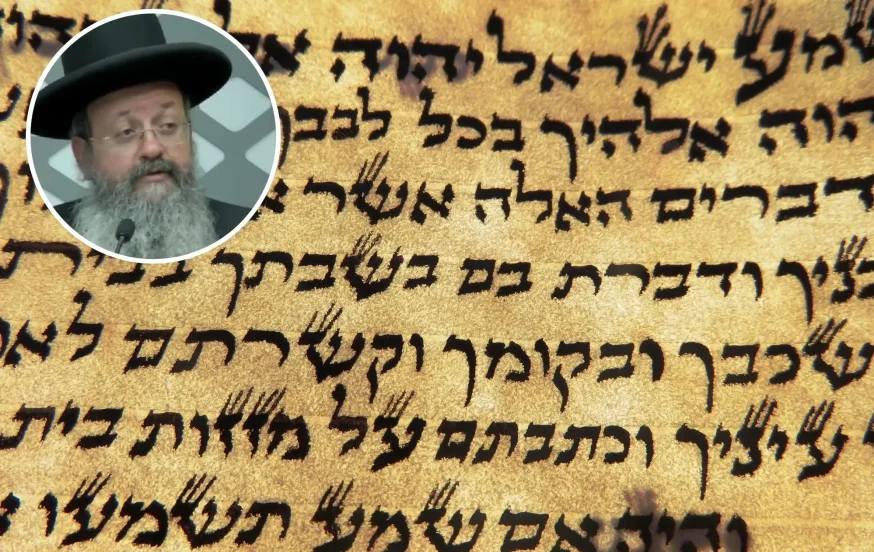 שמע ישראל יהוה
הוה אלהיך בכל לבבך
דברים האלה אשר
בניך ודברת בם בשבתך בבית
שכבך ובקומך וקשרתם לא
עיניך וכתבתם על מזזות בית
והיה אם שמע תשמעו